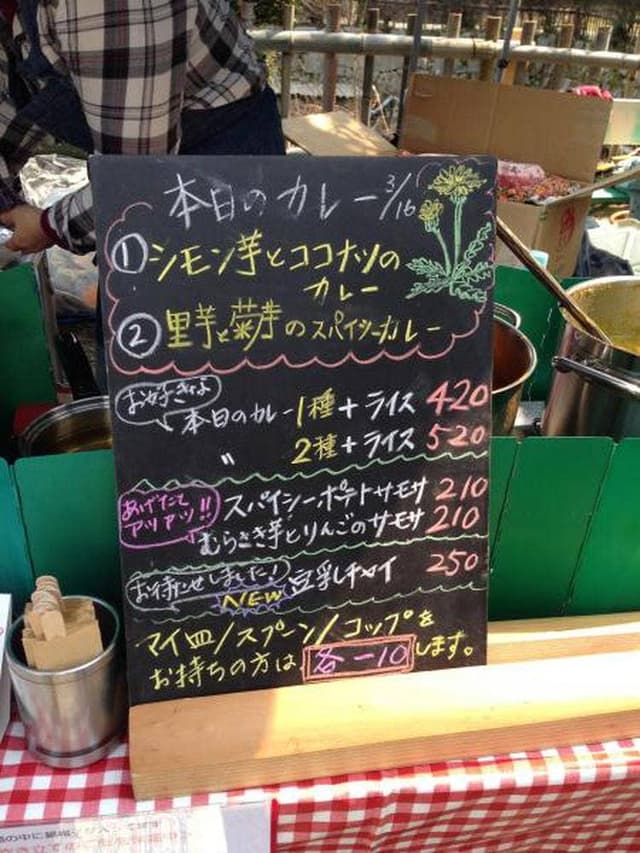 本日のカレー 3/16
① シモン芋とココナツの
カレー
② 里芋と菊芋のスパイシーカレー
お好きな
本日のカレー 1種+ライス 420
〃 2種+ライス 520
あげたて
アツアツ!!
スパイシーポテトサモサ 210
むらさき芋とりんごのサモサ 210
お待たせしました!
NEW
豆乳チャイ 250
マイ皿/スプーン/コップを
お持ちの方は 各-10 します。